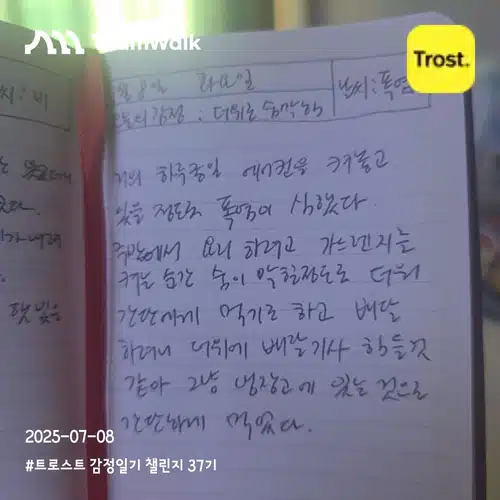 Trost.
7월 8일 화요일
날씨: 폭염
오늘의 감정 : 더위로 숨막혀
씨: 비
거의 하루종일 에어컨을 켜놓고
있을 정도로 폭염이 심했다.
주방에서 요리 하려고 가스렌지를
켜는 순간 숨이 막힐정도로 더워
간단하게 먹기로 하고 배달
하려니 더위에 배달기사 힘들것
같아 그냥 냉장고에 있는 것으로
간단하게 먹었다.
2025-07-08
#트로스트 감정일기 챌린지 37기